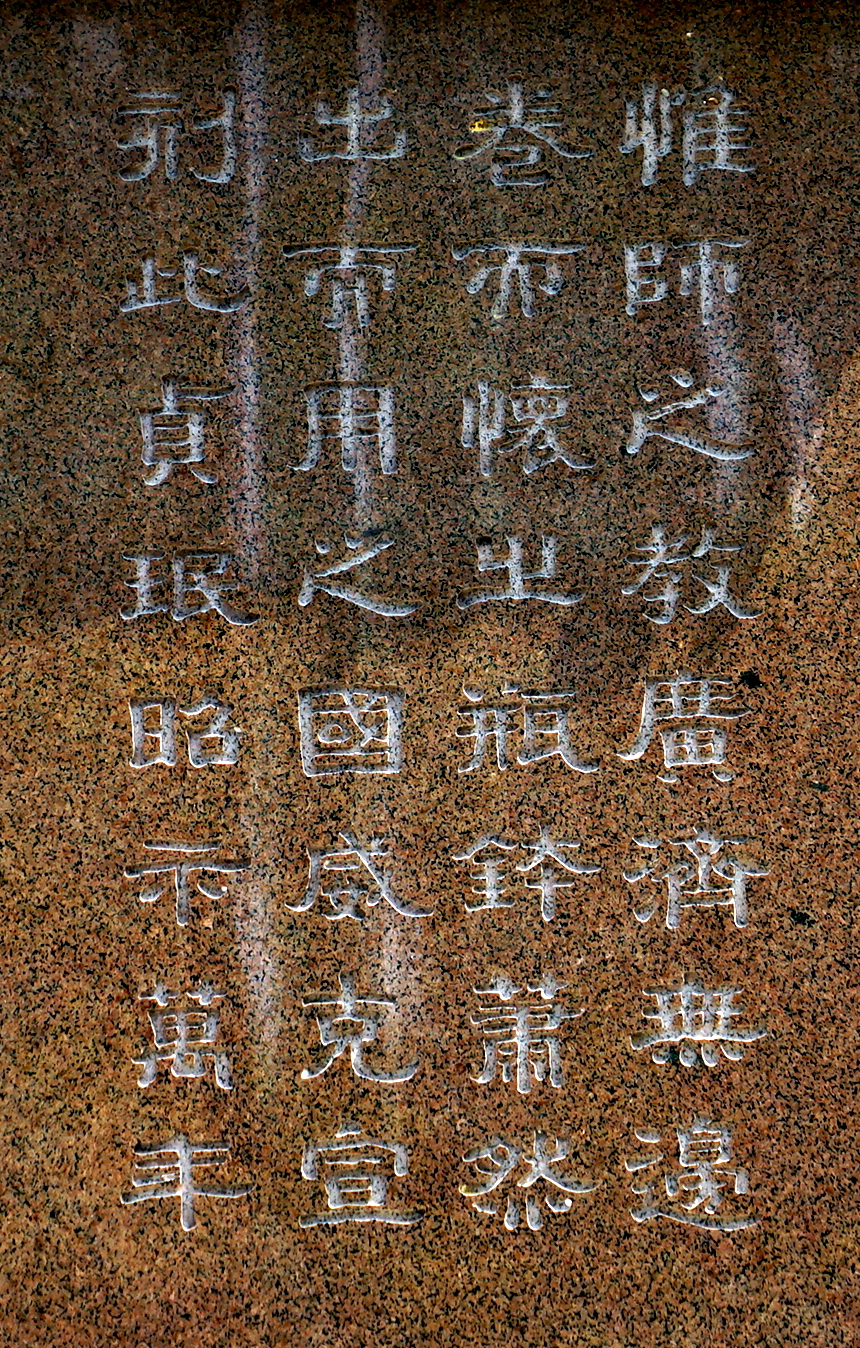 惟師之教廣濟無邊
卷而懷之瓶鉢蕭然
出而用之國威克宣
刻此貞珉昭示萬年